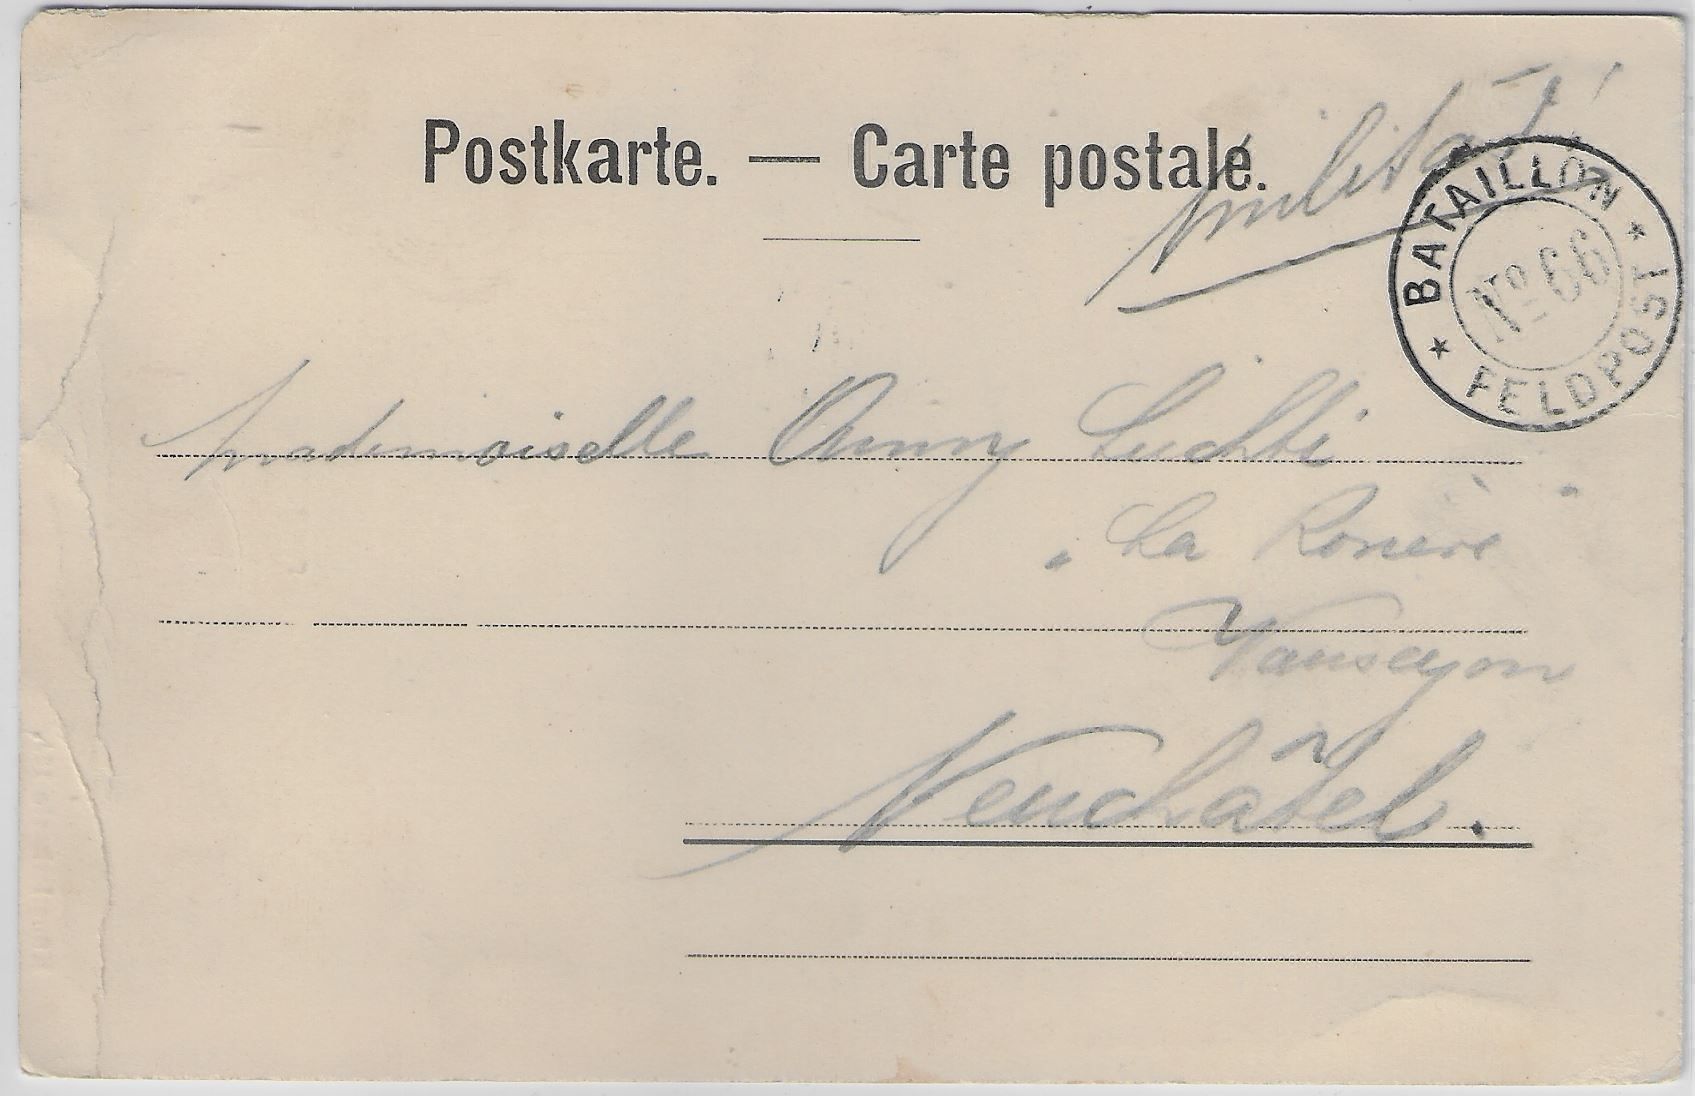 Postkarte. — Carte postale.
Militär!
★ BATAILLON ★
No 66
FELDPOST
Mademoiselle Anny Luchti
La
Vauseyon
Neuchâtel.